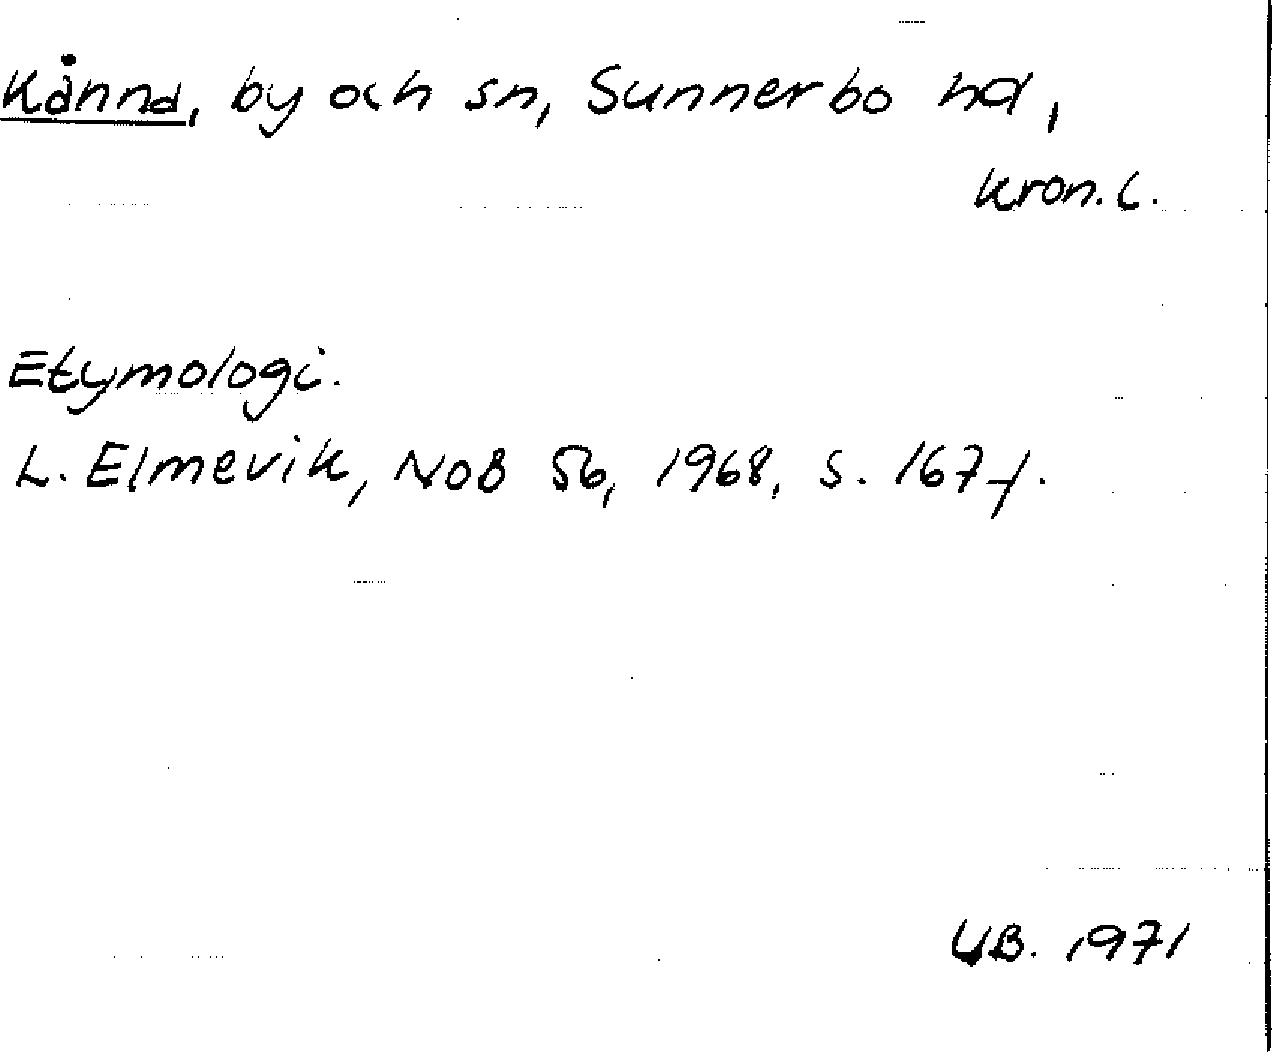 Kånna, by och sn, Sunnerbo hd,
Kron.l.
Etymologi.
L. Elmevik, NoB 56, 1968, s. 167 f.
UB. 1971